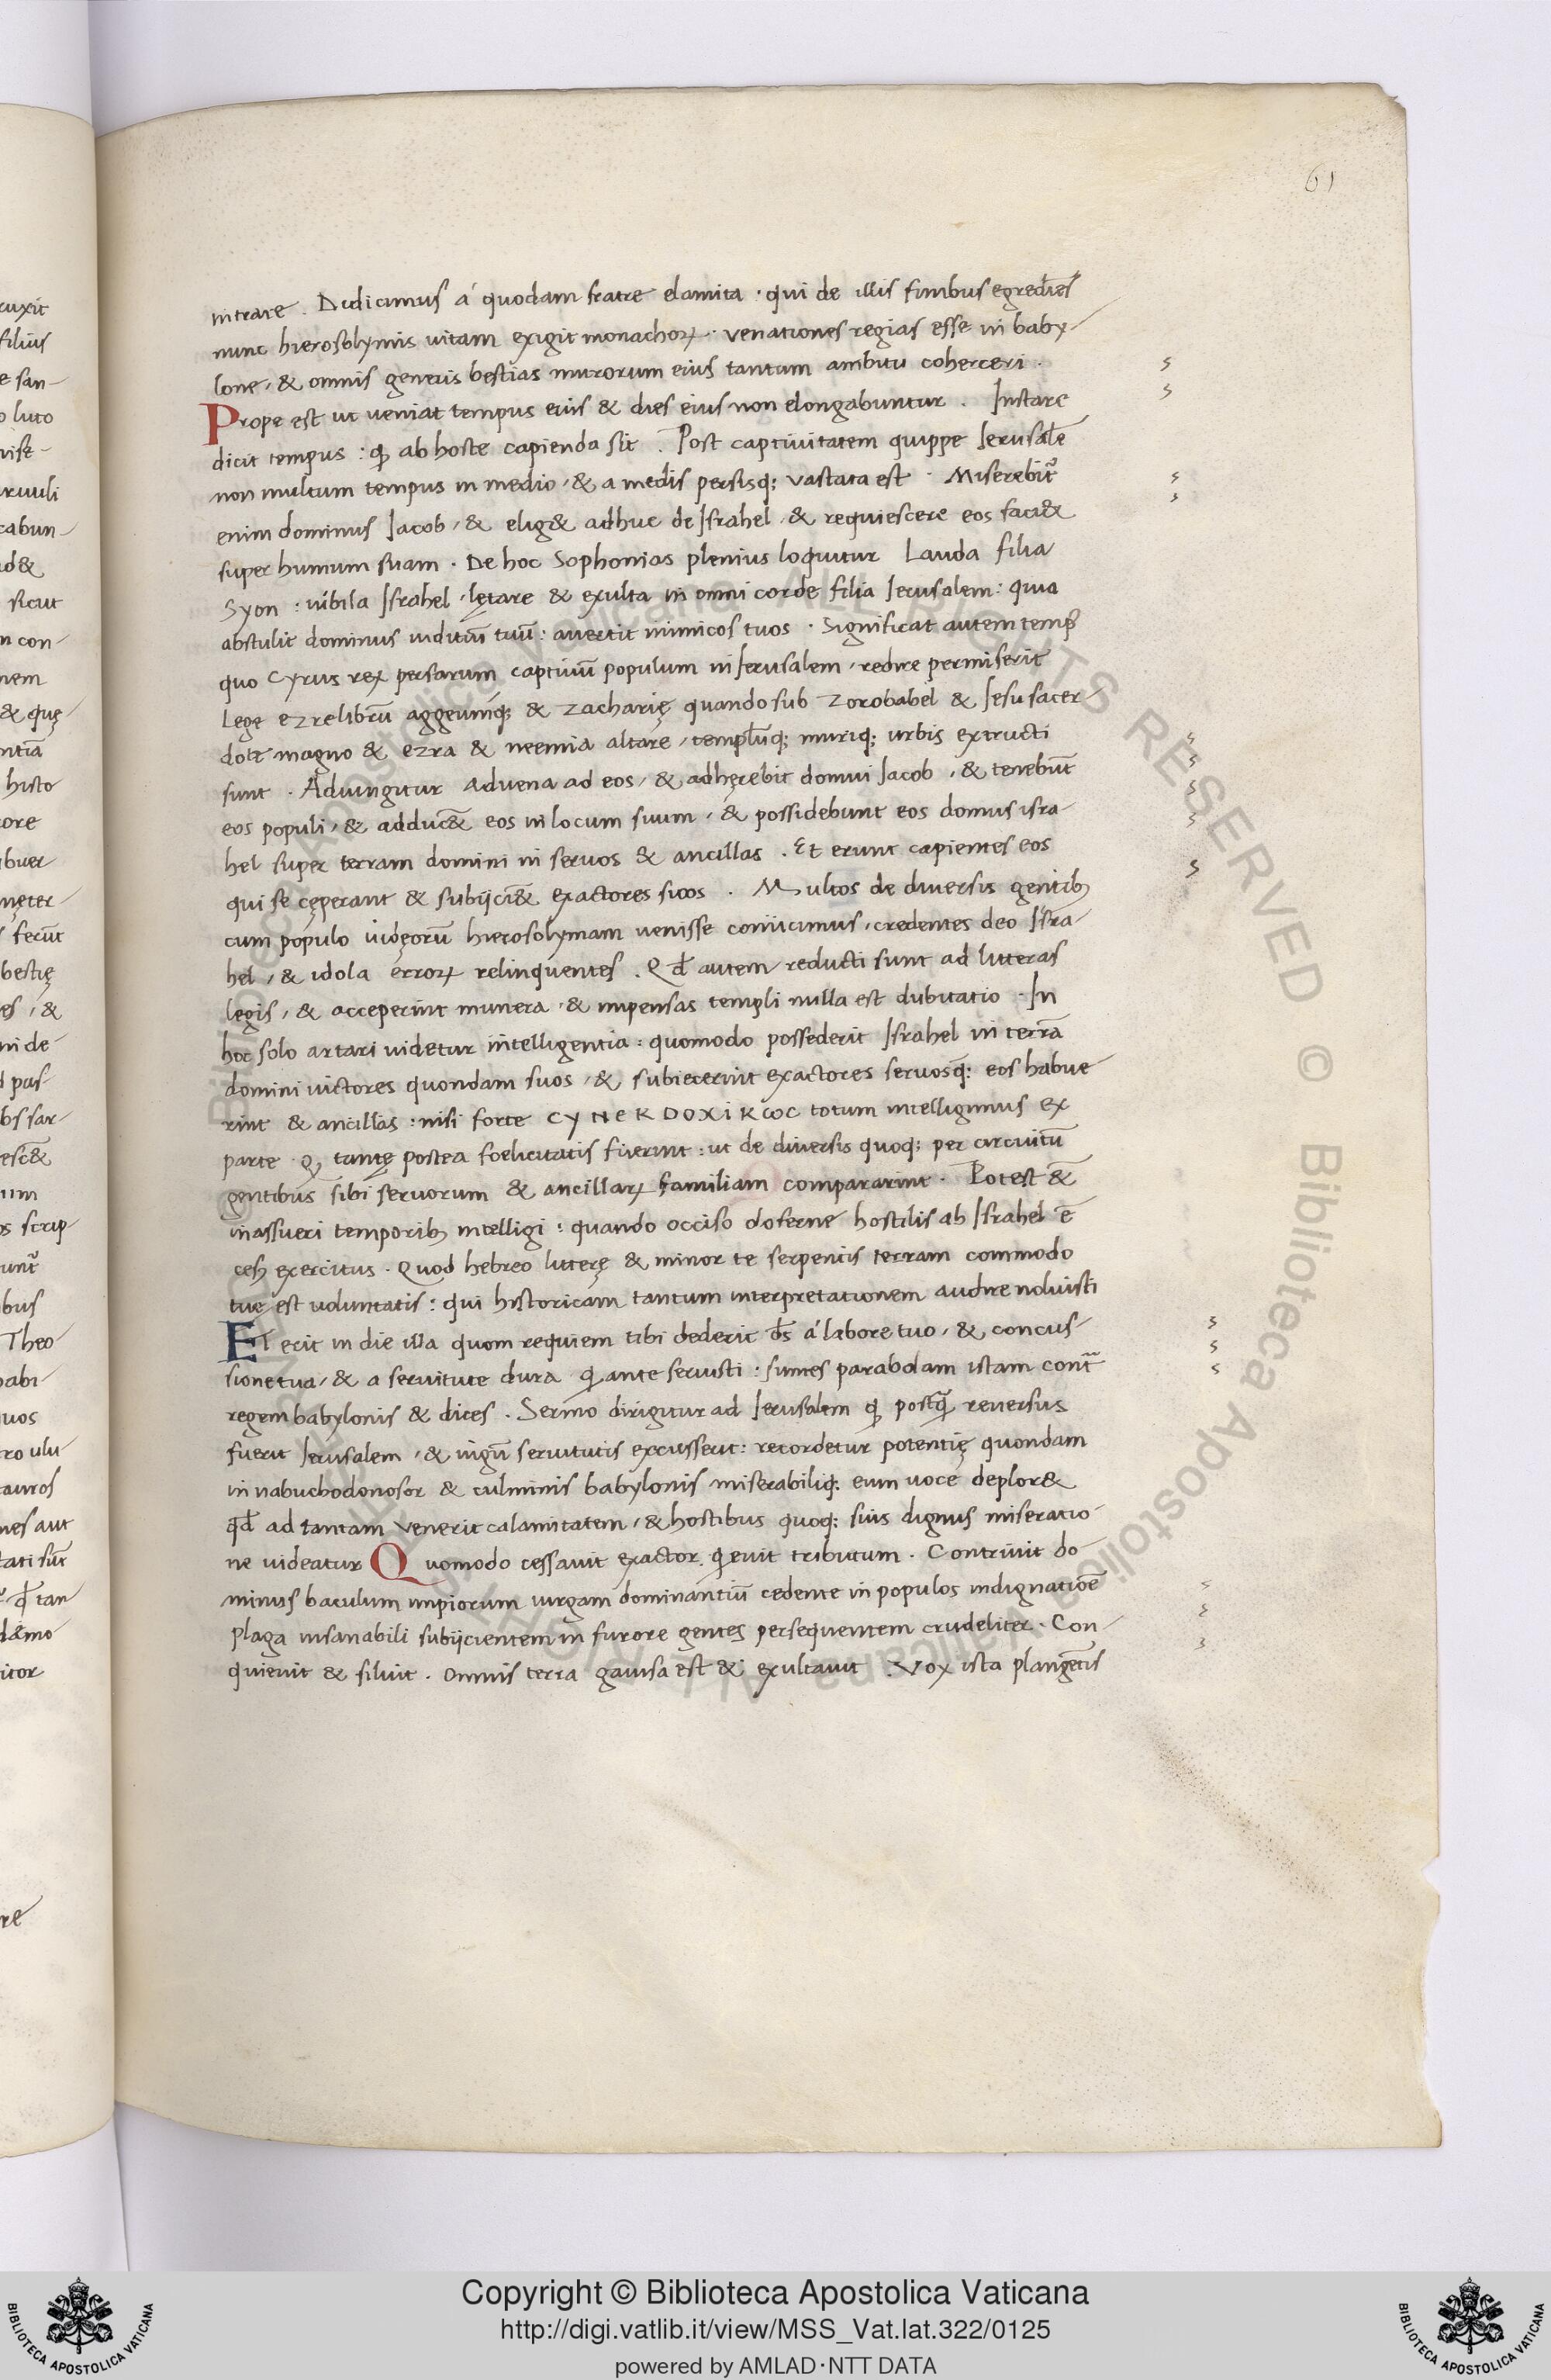 61
intrare . Didicimus á quodam fratre elamita · qui de illis finibus egrediēs
nunc hierosolymis uitam exigit monachoꝝ · venationes regias esse in baby-
lone, & omnis generis bestias murorum eius tantum ambitu coherceri .
Prope est ut veniat tempus eius & dies eius non elongabuntur . Instare
dicit tempus : ꝙ ab hoste capienda sit . Post captiuitatem quippe Ierusalē
non multum tempus in medio, & a medis persisq; vastata est · Miserebit᷑
enim dominus Iacob, & elig& adhuc de Israhel, & requiescere eos faci&
super humum suam . De hoc Sophonias plenius loquitur Lauda filia
Syon : iubila Israhel, lętare & exulta in omni corde filia Ierusalem : quia
abstulit dominus iuditiū tuū : auertit inimicos tuos · Significat autem temp᷒
quo Cyrus rex persarum captiuū populum in Ierusalem, redire permiserit
Lege ezre librū aggeumq; & Zacharię quando sub Zorobabel & Iesu sacer-
dote magno & ezra & neemia altare, templūq; muriq; urbis extructi
sunt . Adiungitur advena ad eos, & adhęrebit domui Iacob, & tenebūt
eos populi, & adduc& eos in locum suum, & possidebunt eos domus isra-
hel super terram domini in seruos & ancillas . Et erunt capientes eos
qui se cęperant & subijci& exactores suos . Multos de diuersis gentibꝫ
cum populo iudęorū hierosolymam uenisse coniicimus, credentes deo Isra-
hel, & idola erroꝝ relinquentes . Qđ autem reducti sunt ad litteras
legis, & acceperint munera, & impensas templi nulla est dubitatio · In
hoc solo artari uidetur intelligentia : quomodo possederit Israhel in terrā
domini uictores quondam suos, & subiecerint exactores seruosq; eos habue-
rint & ancillas : nisi forte CYNEKDOXIKωC totum intelligimus ex
parte · ꝙ tantę postea foelicitatis fuerint : ut de diuersis quoq; per circuitū
gentibus sibi seruorum & ancillaꝝ familiam compararint · Potest &
in assueri temporibꝫ intelligi : quando occiso doferne hostilis ab Israhel ē
cesꝰ exercitus . Quod hebreo litterę & minor te serpentis terram commodo
tue est uoluntatis : qui historicam tantum interpretationem audire noluisti
ET erit in die illa quom requiem tibi dederit d̄s á labore tuo, & concus-
sione tua, & a seruitute dura q̨ ante seruisti : sumes parabolam istam contᷓ
regem babylonis & dices . Sermo dirigitur ad Ierusalem ꝙ postꝙ̄ reuersus
fuerit Ierusalem, & iugū seruitutis excusserit : recordetur potentię quondam
in nabuchodonosor & culminis babylonis miserabiliq; eum uoce deplor&
qđ ad tantam venerit calamitatem, & hostibus quoq; suis dignus miseratio-
ne uideatur Quomodo cessauit exactor, quieuit tributum . Contriuit do-
minus baculum impiorum uirgam dominantiū cedente in populos indignatiōe
plaga insanabili subijcientem in furore gentes persequentem crudeliter . Con-
quieuit & siluit . omnis terra gauisa est & exultauit . Vox ista plangētis
Copyright © Biblioteca Apostolica Vaticana
http://digi.vatlib.it/view/MSS_Vat.lat.322/0125
powered by AMLAD·NTT DATA